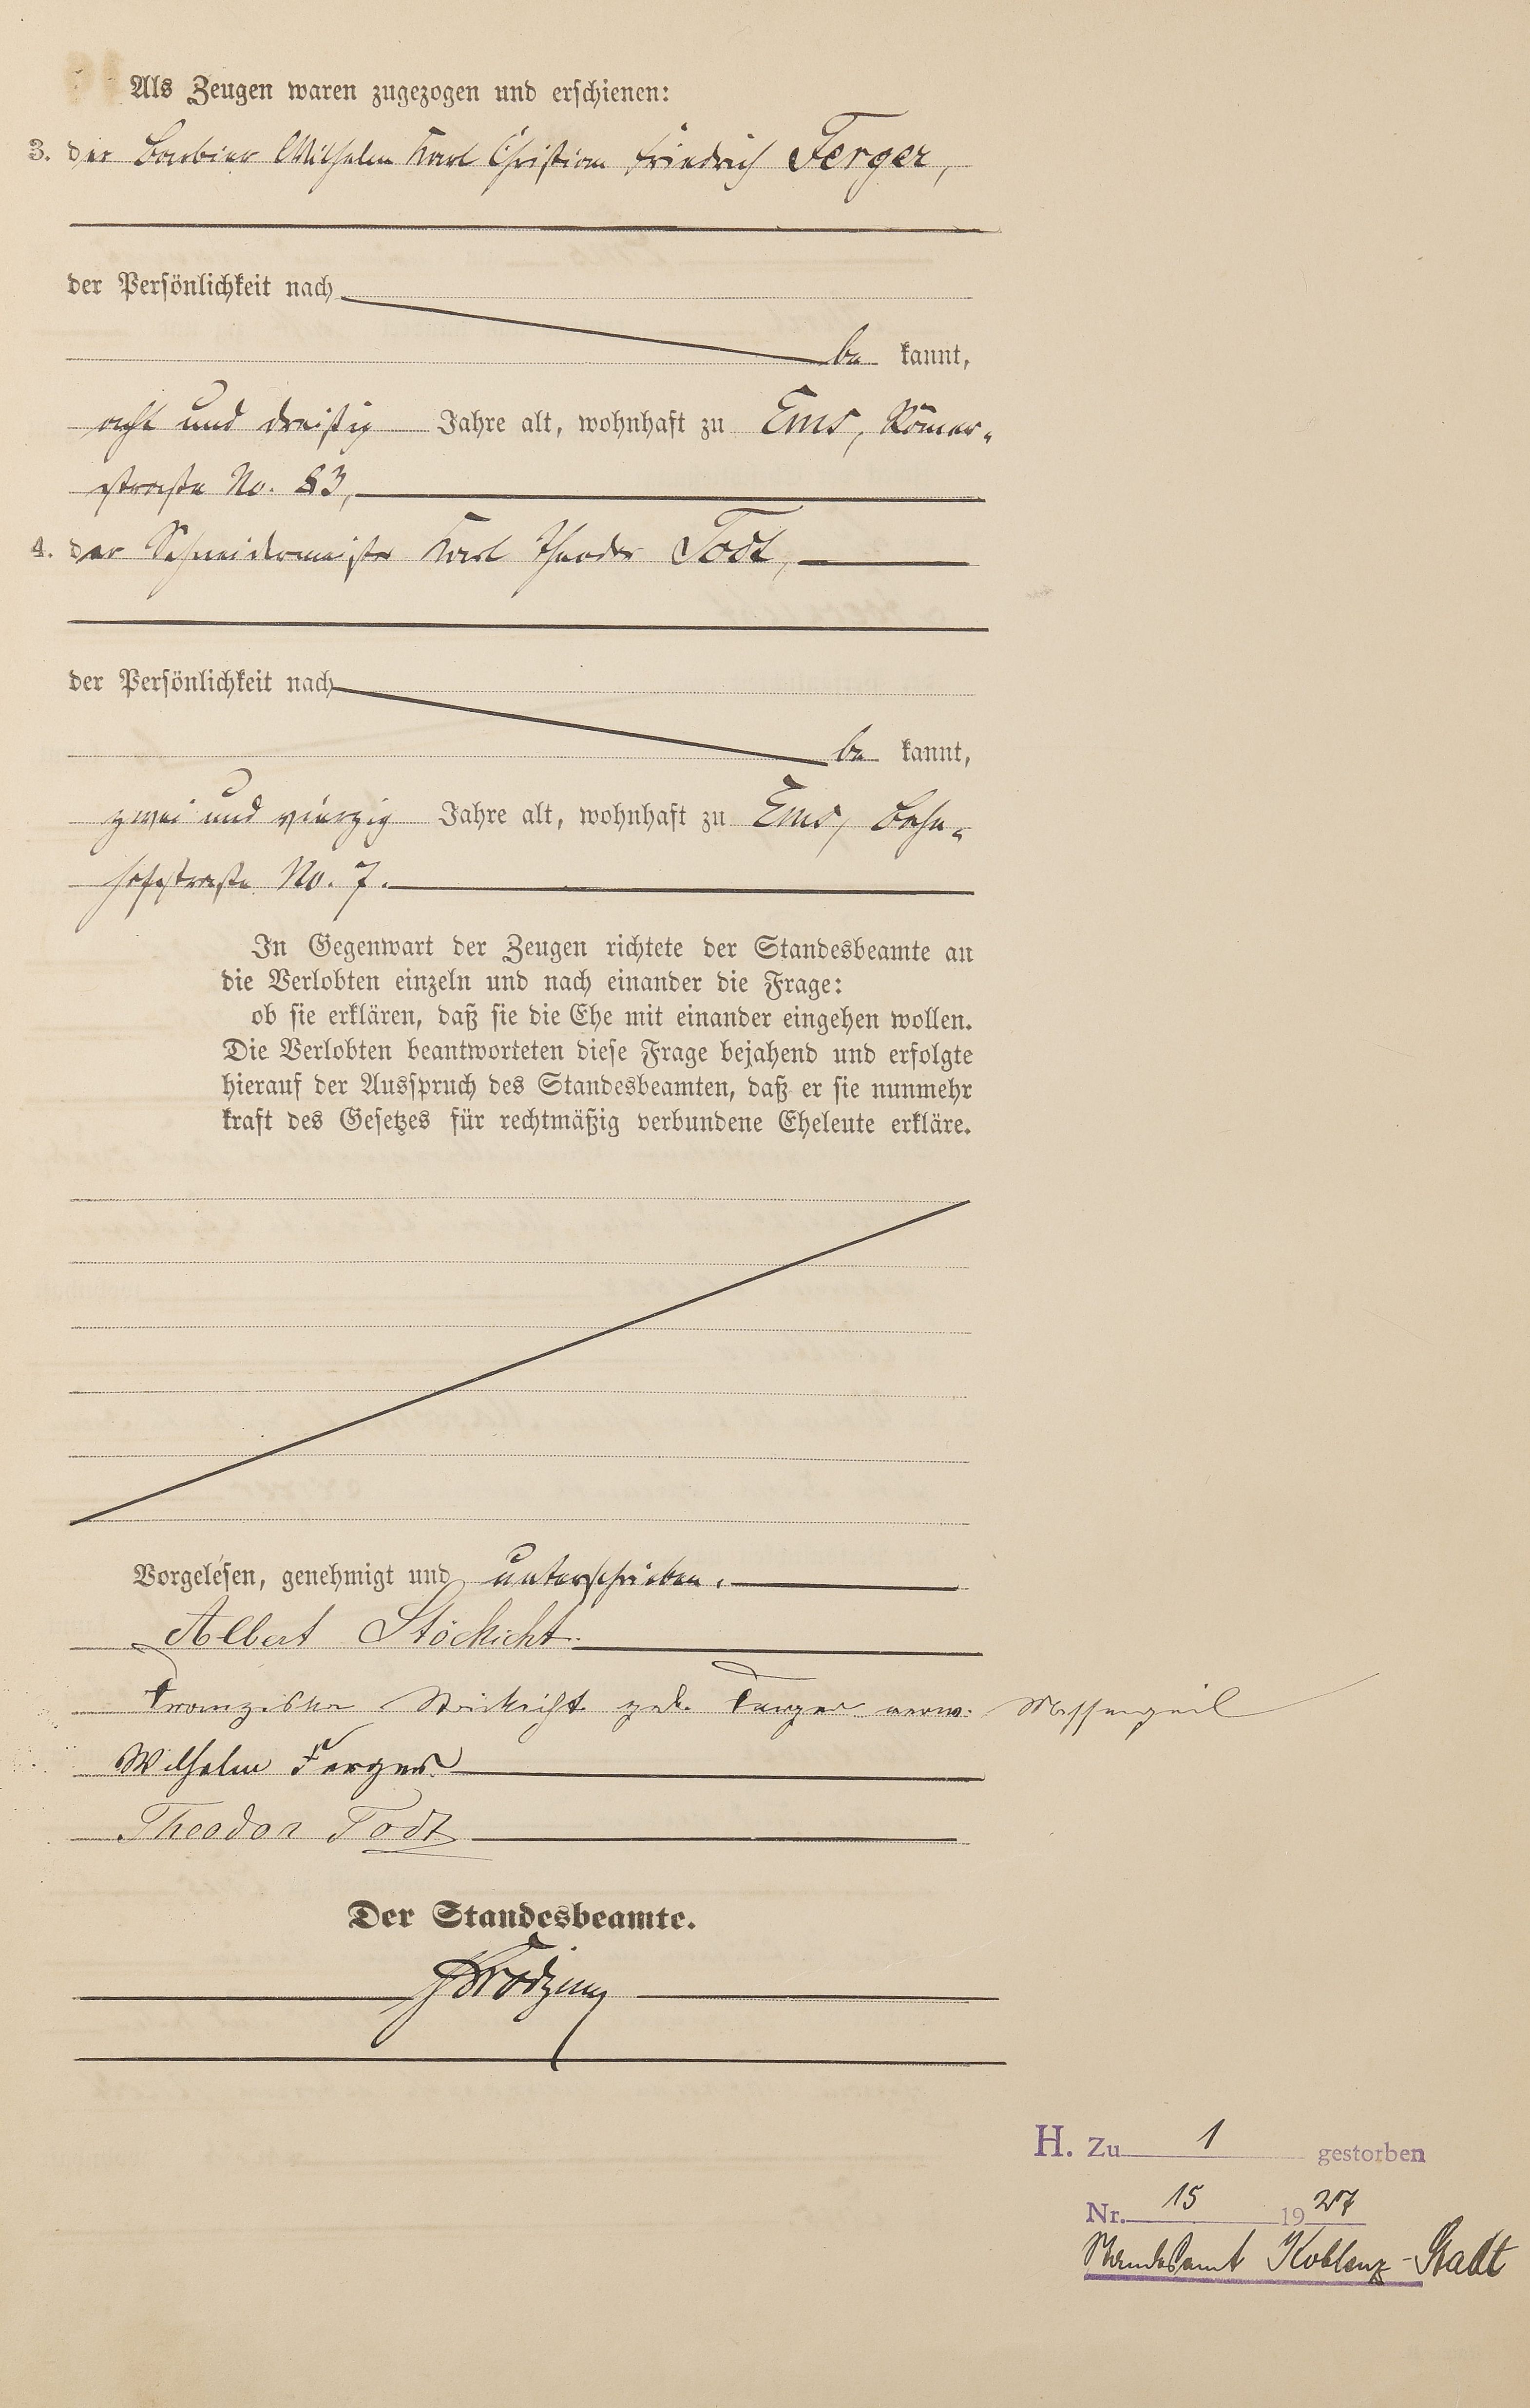 Als Zeugen waren zugezogen und erschienen:
3. der Barbier Wilhelm Karl Christian Friedrich Ferger,
der Persönlichkeit nach
be kannt,
acht und dreißig Jahre alt, wohnhaft zu Ems, Römer-
straße No. 83,
4. der Schneidermeister Karl Theodor Todt,
der Persönlichkeit nach
be kannt,
zwei und vierzig Jahre alt, wohnhaft zu Ems, Bahn-
hofstraße No. 7.
In Gegenwart der Zeugen richtete der Standesbeamte an
die Verlobten einzeln und nach einander die Frage:
ob sie erklären, daß sie die Ehe mit einander eingehen wollen.
Die Verlobten beantworteten diese Frage bejahend und erfolgte
hierauf der Ausspruch des Standesbeamten, daß er sie nunmehr
kraft des Gesetzes für rechtmäßig verbundene Eheleute erkläre.
Vorgelesen, genehmigt und unterschrieben.
Albert Stöckicht.
Franziska Stöckicht geb. Ferger verw. Massengeil
Wilhelm Ferger
Theodor Todt
Der Standesbeamte.
H. Zu 1 gestorben
Nr. 15 1927
Standesamt Koblenz-Stadt